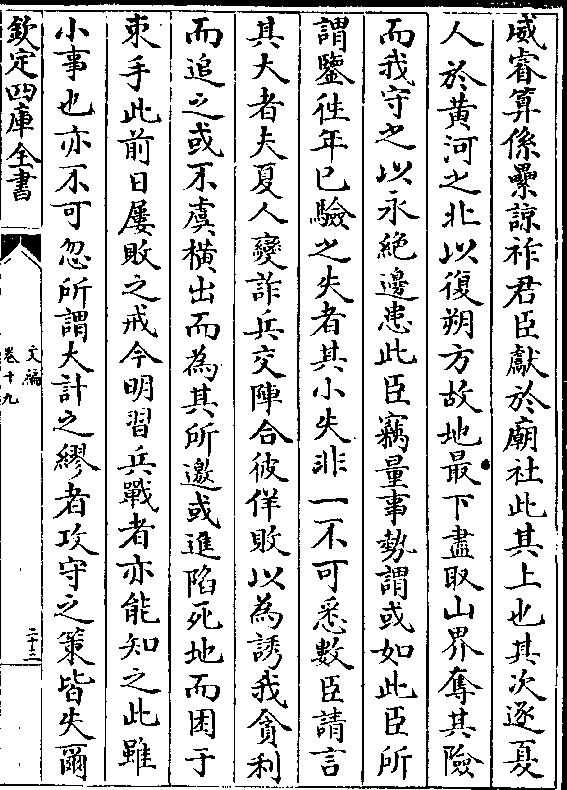 威睿算係纍諒祚君臣獻於廟社此其上也其次逐夏
人於黃河之北以復朔方故地最下盡取山界奪其險
而我守之以永絶邊患此臣竊量事勢謂或如此臣所
謂鑒徃年已驗之失者其小失非一不可悉數臣請言
其大者夫夏人變詐兵交陣合彼佯敗以為誘我貪利
而追之或不虞橫出而為其所邀或進陷死地而困于
束手此前日屢敗之戒今明習兵戰者亦能知之此雖
小事也亦不可忽所謂大計之繆者攻守之策皆失爾
欽定四庫全書
文編
卷十九
二十三